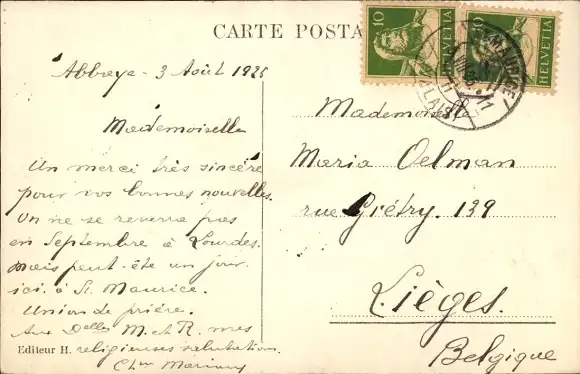 CARTE POSTA
10 HELVETIA
10 HELVETIA
Abbaye - 3 Août 1925
Mademoiselle
Un merci très sincère
pour vos bonnes nouvelles.
On ne se reverra pas
en Septembre à Lourdes.
mais peut-être un jour
ici à St. Maurice.
Union de prière.
Aux Delles M. et R. mes
religieuses salutation
Chne
Editeur H.
Mademoiselle
Maria Oelman
rue Grétry. 139
Lièges.
Belgique